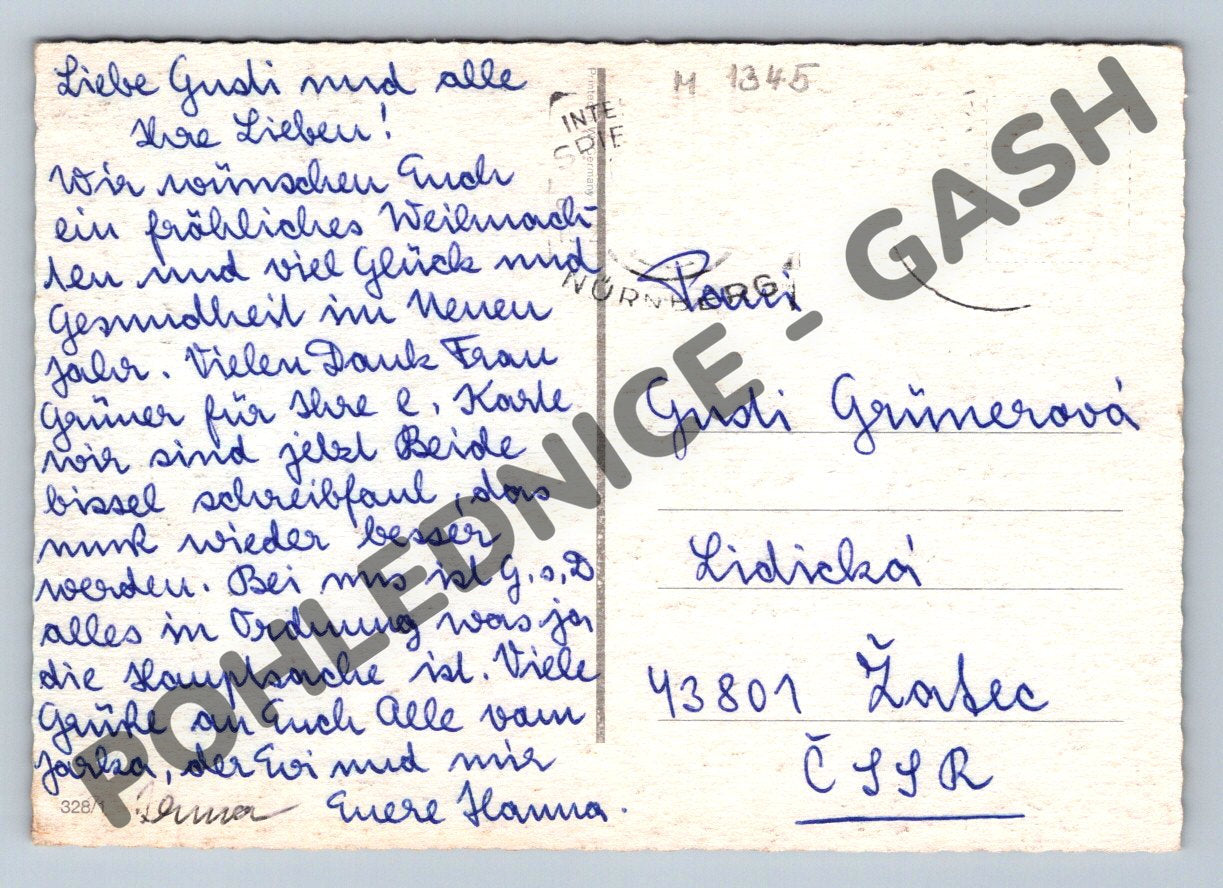 Liebe Gusti und alle
Ihre Lieben!
Wir wünschen Euch
ein fröhliches Weihnach-
ten und viel Glück und
Gesundheit im Neuen
Jahr. Vielen Dank Frau
Grüner für Ihre l. Karte
wir sind jetzt Beide
bissel schreibfaul, das
muß wieder besser
werden. Bei uns ist G.s.D
alles in Ordnung was ja
die Hauptsache ist. Viele
Grüße an Euch Alle vom
Jarka, der Evi und mir
Euere Hanna.
328/1
M 1345
INTE
SPIE
NÜRNBERG
Paní
Gusti Grünerová
Lidická
43801 Žatec
ČSSR
POHLEDNICE - GASH